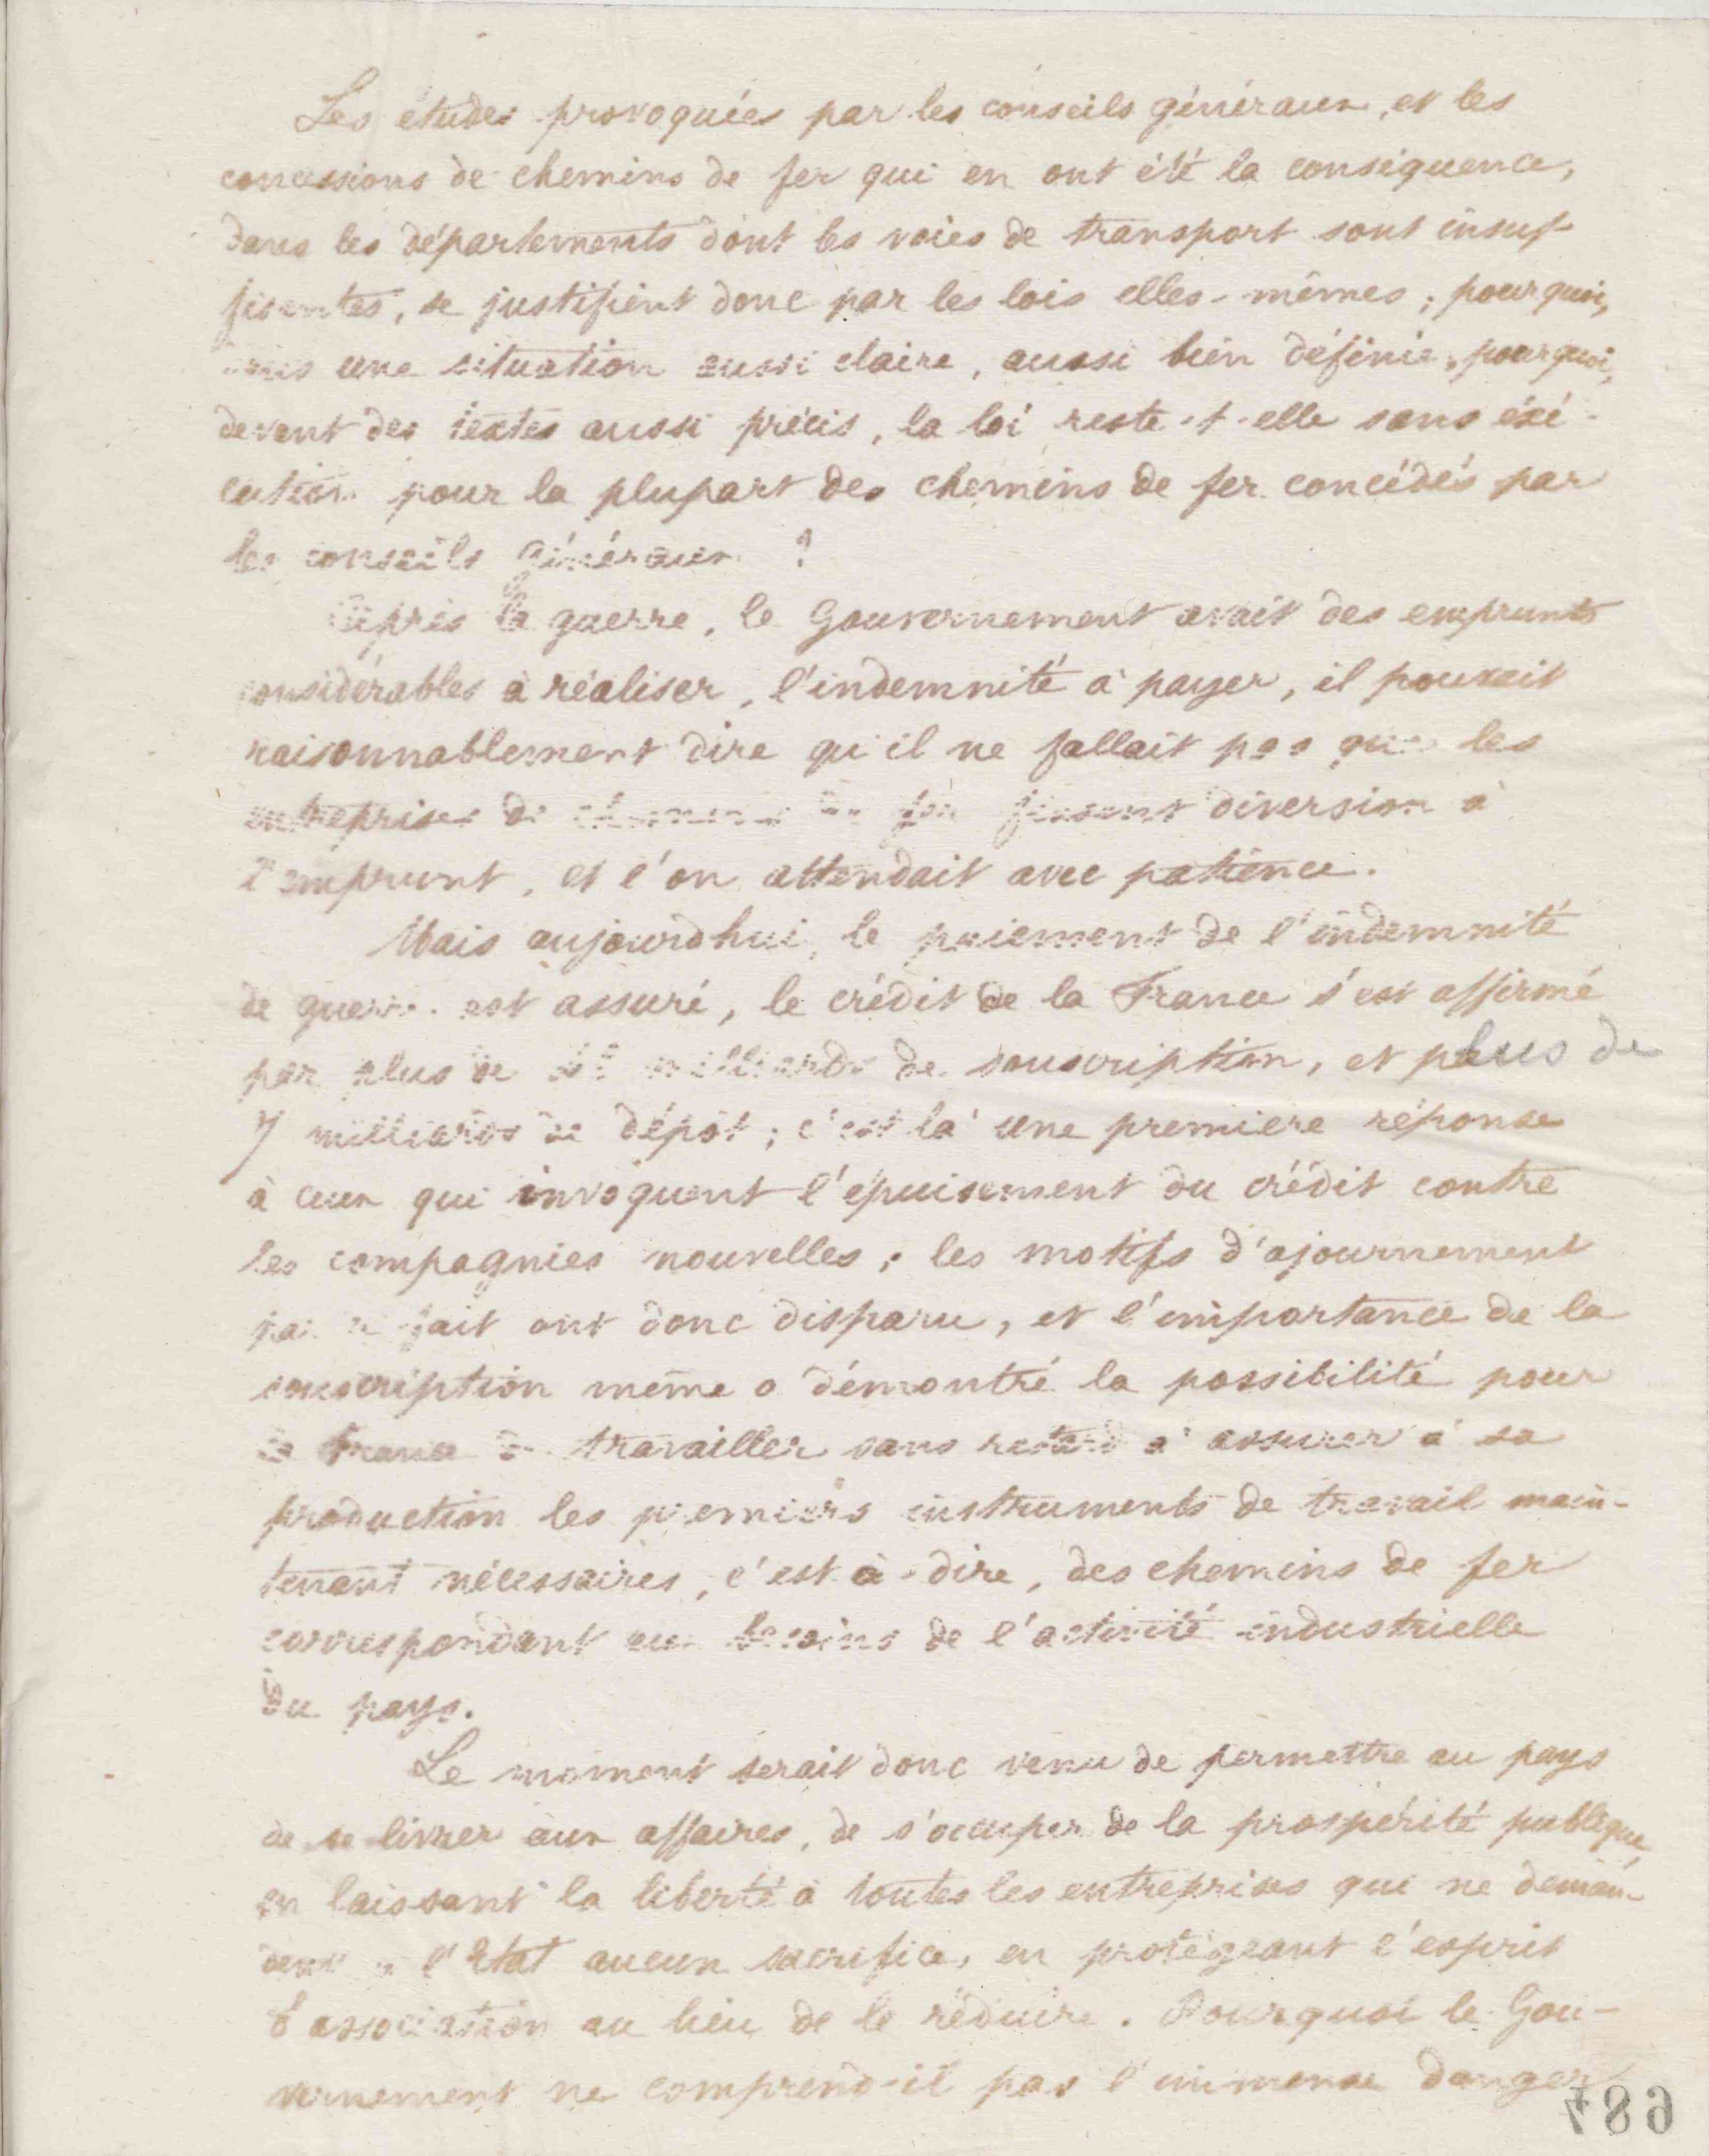 Les études provoquées par les conseils généraux, et les
concessions de chemins de fer qui en ont été la conséquence,
dans les départements dont les voies de transport sont insuf-
fisantes, se justifient donc par les lois elles-mêmes ; pourquoi,
dans une situation aussi claire, aussi bien définie, pourquoi,
devant des textes aussi précis, la loi reste-t-elle sans éxé-
cution pour la plupart des chemins de fer concédés par
les conseils généraux ?
Après la guerre, le Gouvernement avait des emprunts
considérables à réaliser, l'indemnité à payer, il pouvait
raisonnablement dire qu'il ne fallait pas que les
entreprises de chemins de fer fissent diversion à
l'emprunt, et l'on attendait avec patience.
Mais aujourd'hui, le paiement de l'indemnité
de guerre est assuré, le crédit de la France s'est affirmé
par plus de milliards de souscription, et plus de
7 milliards de dépôt ; c'est là une première réponse
à ceux qui invoquent l'épuisement du crédit contre
les compagnies nouvelles ; les motifs d'ajournement
par le fait ont donc disparu, et l'importance de la
souscription même a démontré la possibilité pour
la France de travailler sans retard à assurer à sa
production les premiers instruments de travail main-
tenant nécessaires, c'est-à-dire, des chemins de fer
correspondant aux besoins de l'activité industrielle
du pays.
Le moment serait donc venu de permettre au pays
de se livrer aux affaires, de s'occuper de la prospérité publique,
en laissant la liberté à toutes les entreprises qui ne deman-
dent à l'Etat aucun sacrifice, en protégeant l'esprit
d'association au lieu de le réduire. Pourquoi le Gou-
vernement ne comprend-il pas l'immense danger
687